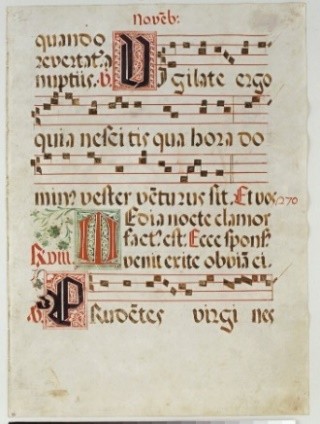 Nouēb:
quando
reuertat.a
nuptiis. ℣. Vigilate ergo
quia nescitis qua hora do
minꝰ vester vēturus sit. Et vos
Media nocte clamor
fact.est. Ecce spons.
venit exite obuiā ei.
℣. PRudētes virgi nes